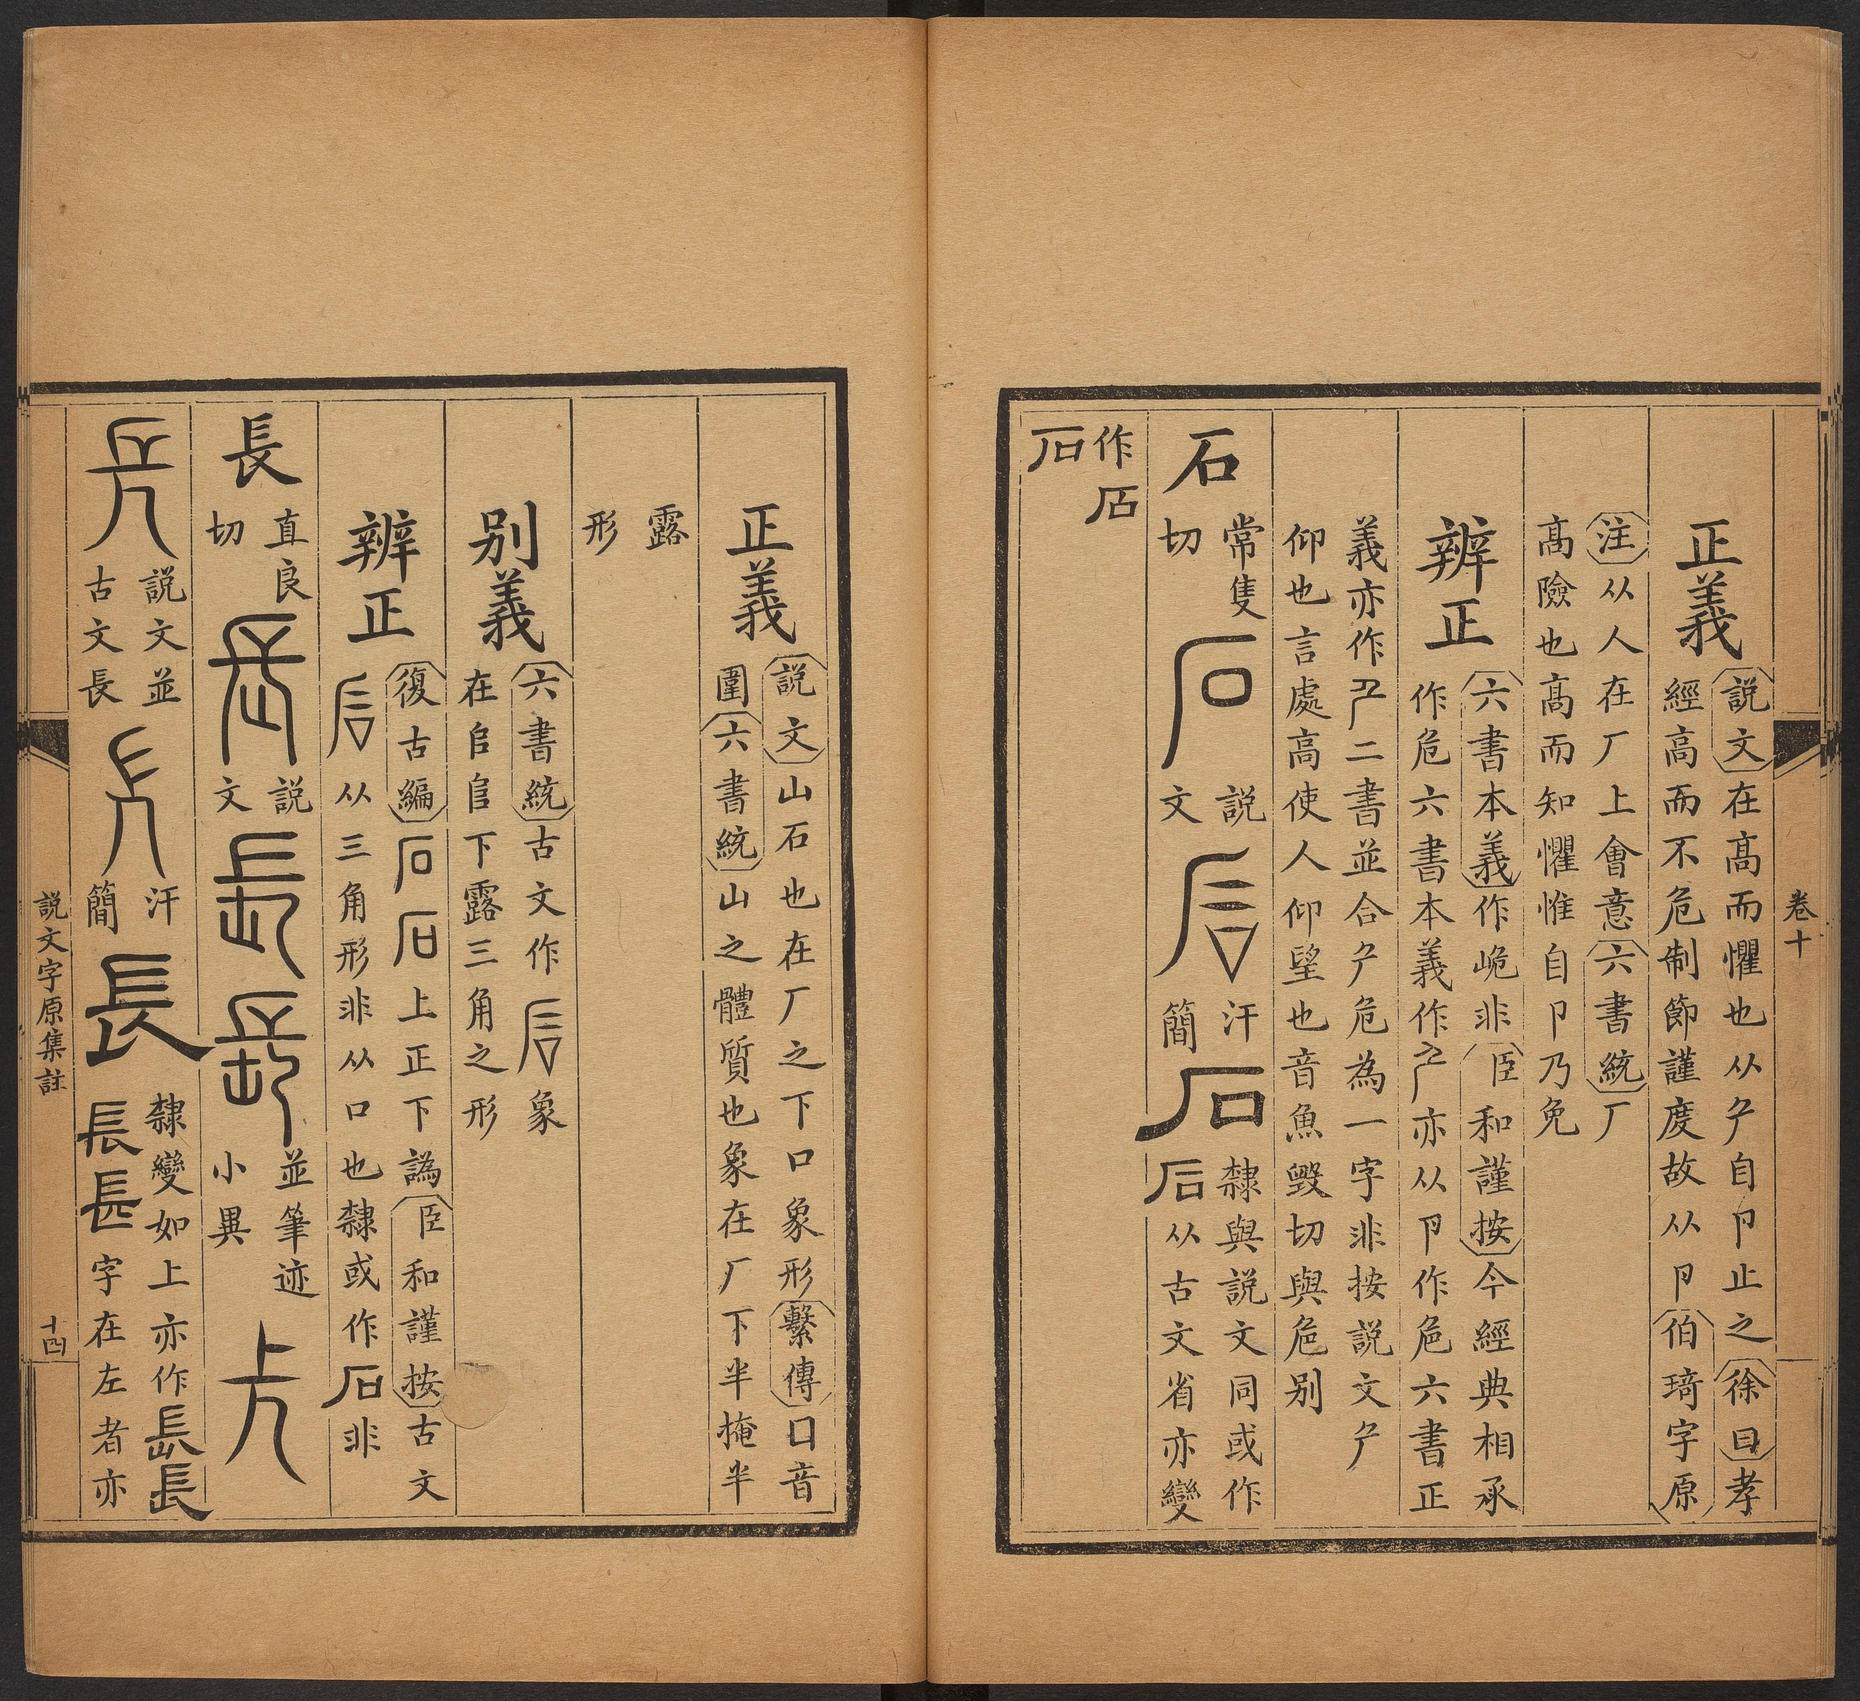 卷十
正義
說文在高而懼也从厃自卪止之徐曰孝
經高而不危制節謹度故从卪伯琦字原
注从人在厂上會意六書統厂
高險也高而知懼惟自卪乃免
辨正
六書本義作峗非臣和謹按今經典相承
作危六書本義作厃亦从卪作危六書正
義亦作二書並合厃危為一字非按說文厃
仰也言處高使人仰望也音魚毀切與危別
石
常隻
切
說
文
汗
簡
隸與說文同或作
从古文省亦變
作
正義
說文山石也在厂之下口象形繫傳口音
圍六書統山之體質也象在厂下半掩半
露
形
別義
六書統古文作象
在𠂤𠂤下露三角之形
辨正
復古編石石上正下譌臣和謹按古文
从三角形非从口也隸或作石非
長
直良
切
說
文
並筆迹
小異
說文並
古文長
汗
簡
長
隸變如上亦作镸長
長镸字在左者亦
說文字原集註
十四